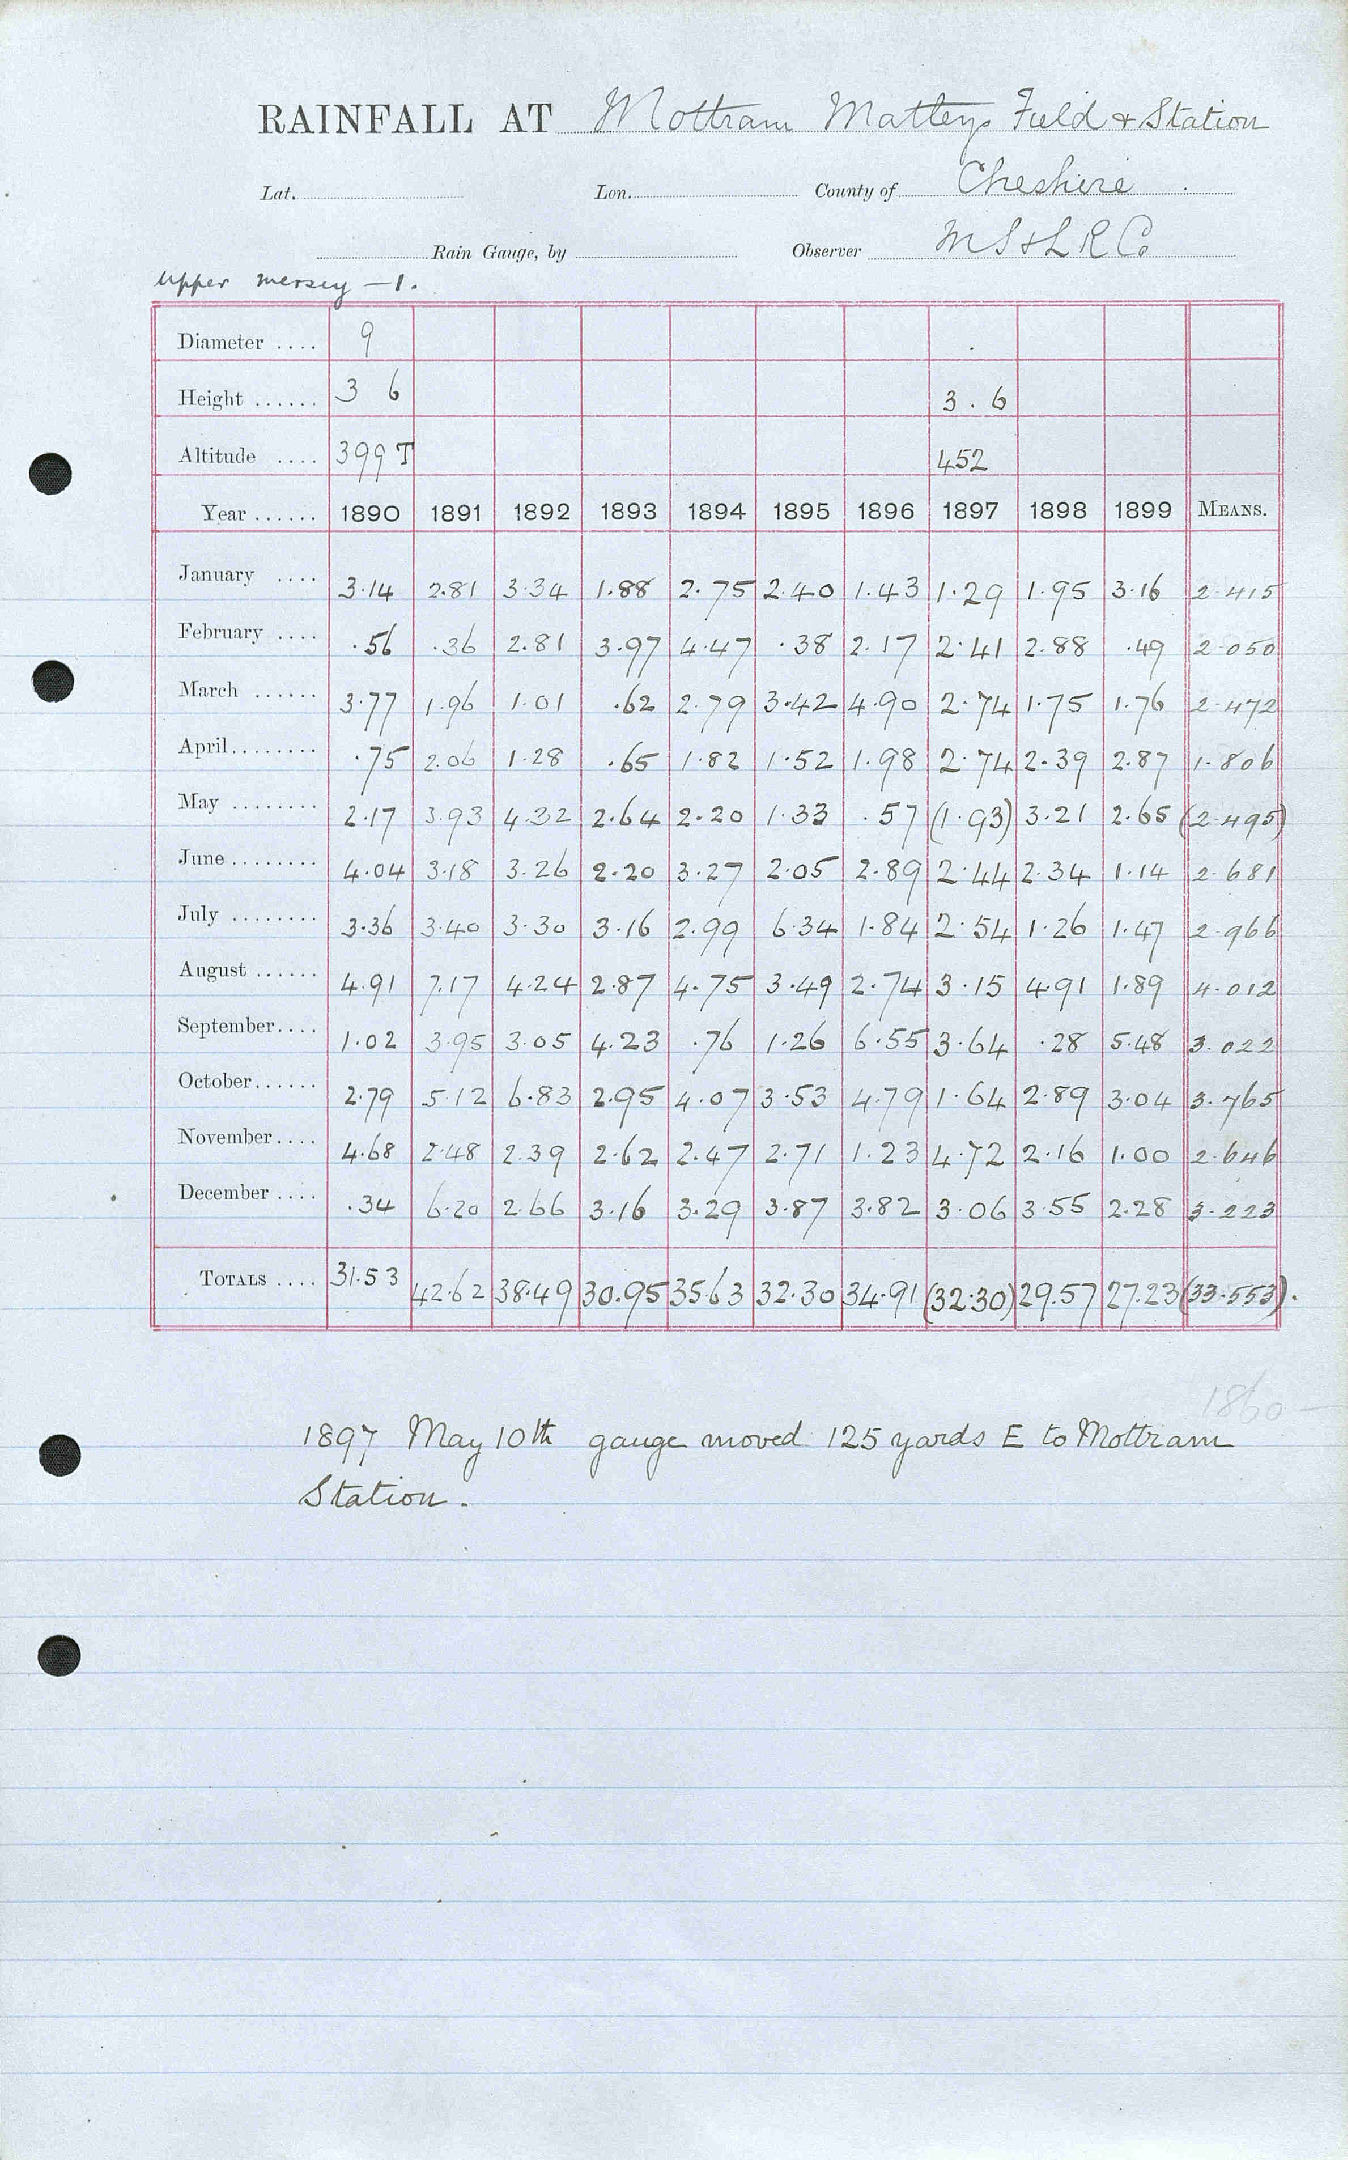 RAINFALL AT Mottram Matleys Field & Station
Lat. Lon. County of Cheshire
Rain Gauge, by Observer M S & L R Co
Upper Mersey — 1.
Diameter .... 9
Height ...... 3 6 3 . 6
Altitude .... 399 T 452
Year ...... 1890 1891 1892 1893 1894 1895 1896 1897 1898 1899 MEANS.
January .... 3.14 2.81 3.34 1.88 2.75 2.40 1.43 1.29 1.95 3.16 2.415
February .... .56 .36 2.81 3.97 4.47 .38 2.17 2.41 2.88 .49 2.050
March ...... 3.77 1.96 1.01 .62 2.79 3.42 4.90 2.74 1.75 1.76 2.472
April ........ .75 2.06 1.28 .65 1.82 1.52 1.98 2.74 2.39 2.87 1.806
May ........ 2.17 3.93 4.32 2.64 2.20 1.33 .57 (1.93) 3.21 2.65 (2.495)
June ........ 4.04 3.18 3.26 2.20 3.27 2.05 2.89 2.44 2.34 1.14 2.681
July ........ 3.36 3.40 3.30 3.16 2.99 6.34 1.84 2.54 1.26 1.47 2.966
August ...... 4.91 7.17 4.24 2.87 4.75 3.49 2.74 3.15 4.91 1.89 4.012
September.... 1.02 3.95 3.05 4.23 .76 1.26 6.55 3.64 .28 5.48 3.022
October...... 2.79 5.12 6.83 2.95 4.07 3.53 4.79 1.64 2.89 3.04 3.765
November.... 4.68 2.48 2.39 2.62 2.47 2.71 1.23 4.72 2.16 1.00 2.646
December .... .34 6.20 2.66 3.16 3.29 3.87 3.82 3.06 3.55 2.28 3.223
TOTALS .... 31.53 42.62 38.49 30.95 35.63 32.30 34.91 (32.30) 29.57 27.23 (33.553).
1860 —
1897 May 10th gauge moved 125 yards E to Mottram
Station.